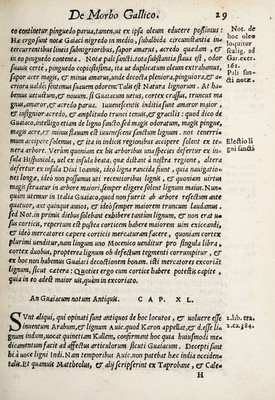 De Morbo Gallico. 29
to continetur pinguedo parua, tamen, ut ex ipso oleum educere possimus:
Ha ergo sunt notæ Guiaci nigredo in medio, subalbida circumstantia in-
tercurrentibus lineis subnigrioribus, sapor amarus, acredo quædam, &
in eo pinguedo contenta. Notæ pali sancti, tota substantia flaua est, odor
suauis certè, pinguedo copiosissima, ita ut duplicatum oleum extrahamus,
sapor acer magis, & minus amarus, unde decocta pleniora, pinguiora, &
acriora
benus utcunque, & nouum, si Guiacum uetus, cortex crassus, truncus ma-
gnus, amaror, & acredo parua. iuuenescentis inditia sunt amaror maior,
& insignior acredo, & amplitudo trunci tenuis, & gracilis: quod dico de
Guiaco, intelligo etiam de ligno sancto, sed magis odoratum, magis pingue,
magis acre, & minus flauum est iuuenescens sanctum lignum. nos teneri-
mum accipere solemus, & ita in indicis regionibus accipere solent ex te-
nera arbore. Verùm quoniam ex his arboribus una species defertur ex in-
sula Hispaniola, uel ex insula beata, quæ distant à nostra regione, altera
defertur ex insula Diui Ioannis, ideò ligna rancida sunt, quia nauigatio-
nes longæ, ideò non possumus uti recentioribus lignis, & quoniam uirtus
magis seruatur in arbore maiori, semper eligere solent lignum maius. Nun-
quam utemur in Italia Guiaco, quod non fuerit ab arbore resectum ante
quatuor, aut quinque annos, & ideò semper maiorem truncum laudamus.
sed Not. in primis diebus solebant exhibere tantùm lignum, & non erat in
sus corticis, repertum est postea corticem habere maiorem uim exiccandi,
& ideo mercatores cepere corticis mercaturam facere, quoniam cortex
plurimi uenditur, nam lingum uno Mocenico uenditur pro singula libra,
cortex duobus, propterea lignum ob defectum tegmenti corrumpitur, &
ex hoc non babemus Guiaci decoctionem bonam. isti mercatores excoriãt
lignum, sicut cætera: Quoties ergo cum cortice habere potestis capite,
quia in eo adest maior uis, quàm in excoriato.
Not. de
hoc oleo
loquitur
Scalig. ad
Car. exer.
161.
Pali san-
cti notæ.
Electio li
gni sancti
An Guaiacum notum Antiquis. CAP. XL.
SVnt aliqui, qui opinati sunt antiquos de hoc locutos, & uoluere esse
inuentum Arabum, & lignum Auic. quod Karon appellat, & d. esse li-
gnum indum, uocat quinetiam Kallem, confirmant hoc quia huiusmodi me-
dicamentum facit ad affectus articulorum sicuti Guaiacum. Decepti sunt
hi à uoce ligni Indi. Nam temporibus Auic. non patebat hæc india occiden-
talis. Et quamuis Mattheolus, & alij scripserint ex Taprobane, & Cale-
2. lib. tra.
2. ca. 384.
H